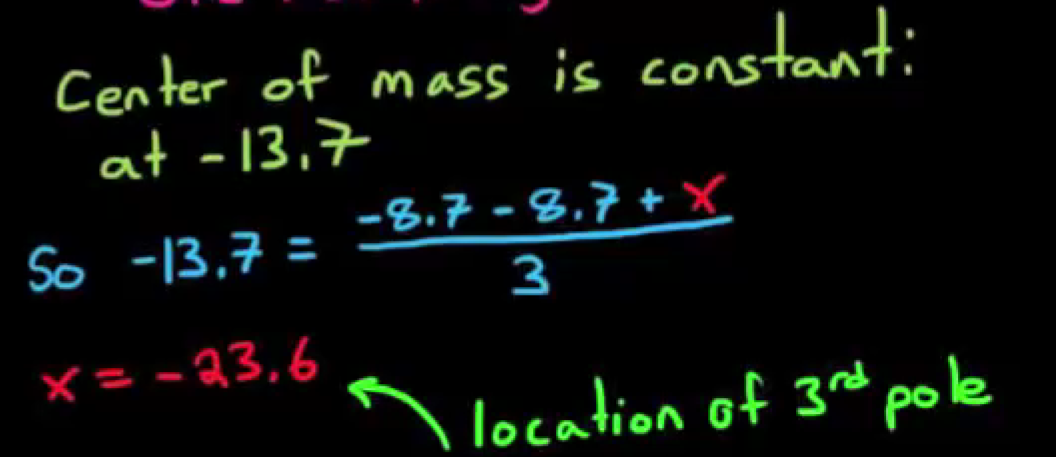 Center of mass is constant:
at -13.7
So -13.7 = (-8.7 - 8.7 + x) / 3
x = -23.6
location of 3rd pole